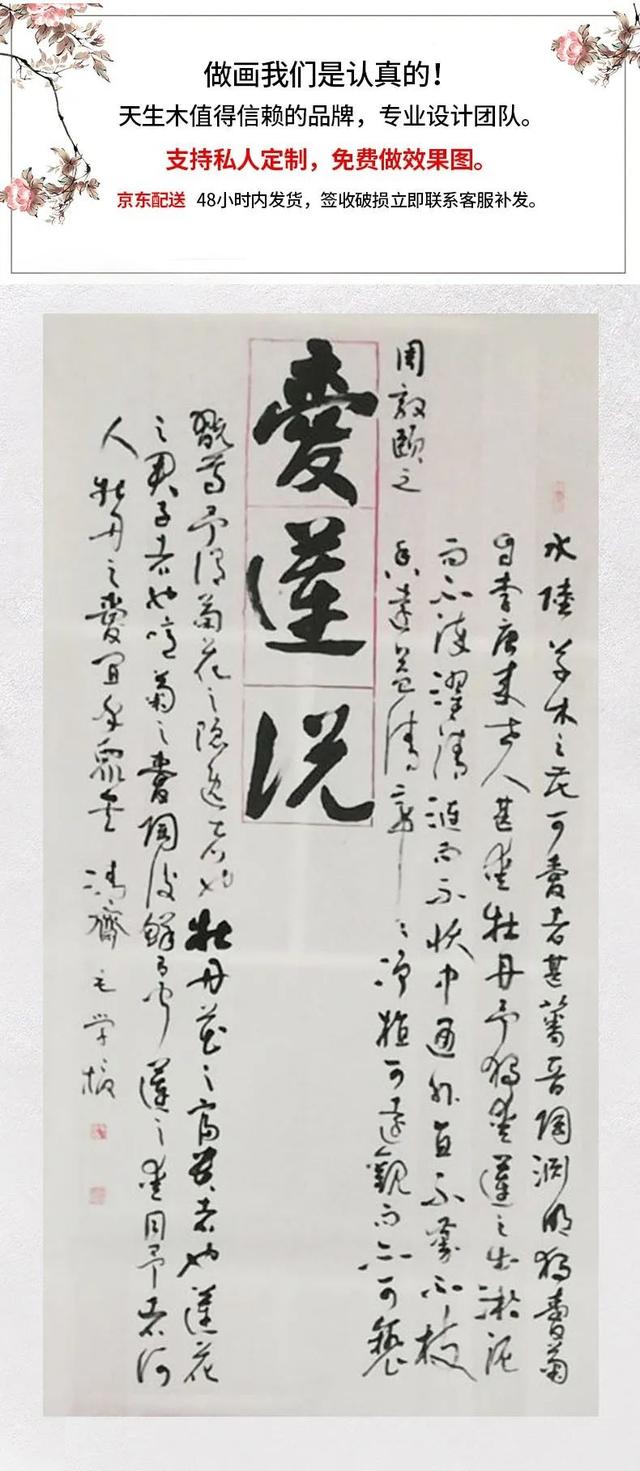 做画我们是认真的！
天生木值得信赖的品牌，专业设计团队。
支持私人定制，免费做效果图。
京东配送 48小时内发货，签收破损立即联系客服补发。
水陸草木之花可愛者甚蕃晉陶渊明独愛菊
自李唐来世人甚爱牡丹予独爱蓮之出淤泥
而不染濯清漣而不妖中通外直不蔓不枝
香遠益清亭亭净植可遠觀而不可褻
周敦颐之
愛蓮说
翫焉予谓菊花之隐逸者也牡丹花之富贵者也蓮花
之君子者也噫菊之愛陶後鲜有闻蓮之爱同予者何
人牡丹之愛宜乎眾矣